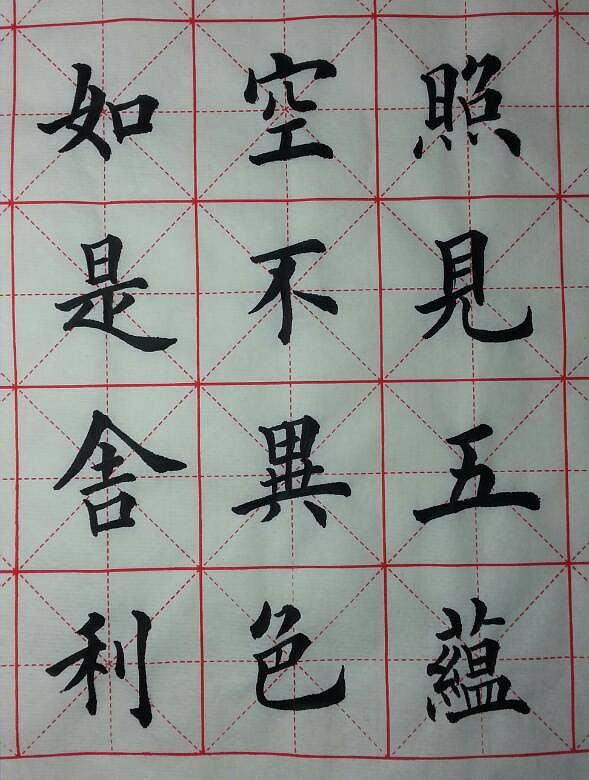 照見五蘊
空不異色
如是舍利